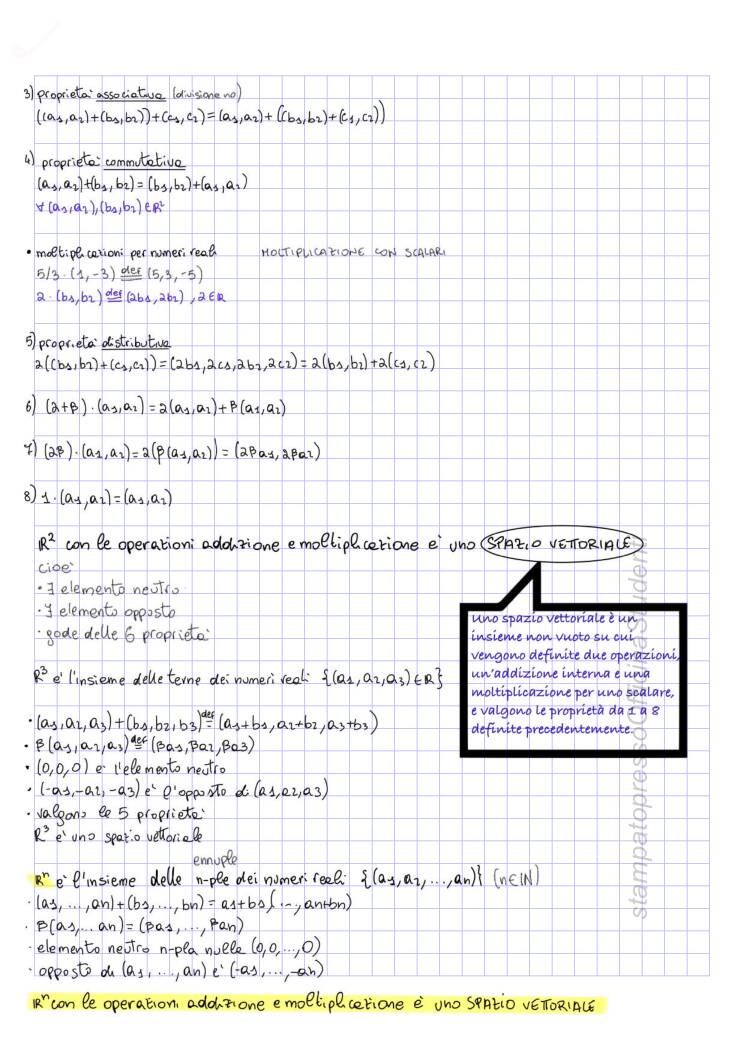 3) proprietà associativa (divisione no)
((a1,a2)+(b1,b2))+(c1,c2)=(a1,a2)+((b1,b2)+(c1,c2))
4) proprietà commutativa
(a1,a2)+(b1,b2)=(b1,b2)+(a1,a2)
∀(a1,a2),(b1,b2)∈R²
• moltiplicazioni per numeri reali MOLTIPLICAZIONE CON SCALARI
5/3·(1,-3) def= (5,3,-5)
2·(b1,b2) def= (2b1,2b2), 2∈R
5) proprietà distributiva
2((b1,b2)+(c1,c2))=(2b1,2c1,2b2,2c2)=2(b1,b2)+2(c1,c2)
6) (2+β)·(a1,a2)=2(a1,a2)+β(a1,a2)
7) (2β)·(a1,a2)=2(β(a1,a2))=(2βa1,2βa2)
8) 1·(a1,a2)=(a1,a2)
R² con le operationi addizione e moltiplicazione è uno SPAZIO VETTORIALE
cioè
• ∃ elemento neutro
• ∃ elemento opposto
• gode delle 6 proprietà
Uno spazio vettoriale è un
insieme non vuoto su cui
vengono definite due operazioni,
un'addizione interna e una
moltiplicazione per uno scalare,
e valgono le proprietà da 1 a 8
definite precedentemente.
R³ è l'insieme delle terne dei numeri reali {(a1,a2,a3)∈R}
• (a1,a2,a3)+(b1,b2,b3) def= (a1+b1,a2+b2,a3+b3)
• β(a1,a2,a3) def= (βa1,βa2,βa3)
• (0,0,0) è l'elemento neutro
• (-a1,-a2,-a3) è l'opposto di (a1,a2,a3)
• valgono le 5 proprietà
R³ è uno spazio vettoriale
ennuple
Rⁿ è l'insieme delle n-ple dei numeri reali {(a1,a2,...,an)} (n∈N)
• (a1,...,an)+(b1,...,bn)=a1+b1(...,an+bn)
• β(a1,...an)=(βa1,...,βan)
• elemento neutro n-pla nulla (0,0,...,0)
• opposto di (a1,...,an) è (-a1,...,-an)
Rⁿ con le operationi addizione e moltiplicazione è uno SPAZIO VETTORIALE
stampatopressoOfficinaStudenti